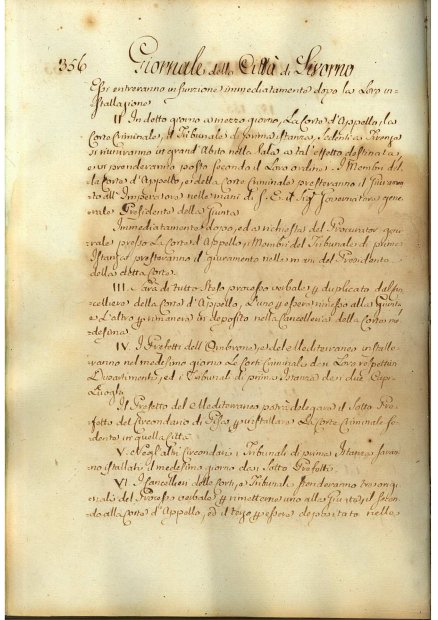 356 Giornale della Città di Livorno
Essi entreranno in funzione immediatamente dopo la Loro in-
stallazione
II In detto giorno a mezzo giorno, La Corte d'Appello, la
Corte Criminale, il Tribunale di prima istanza, sedenti a Firenze
si riuniranno in grand'Abito nella Sala a tal'effetto destinata,
e vi prenderanno posto secondo il Loro ordine. I Membri del-
la Corte d'Appello, e della Corte Criminale presteranno il Giuramen-
to all'Imperatore nelle mani di S. E. il Sig. Governatore gene-
rale Presidente della Giunta
Immediatamente dopo, ed a richiesta del Procurator gene-
rale presso La Corte d'Appello, i Membri del Tribunale di prima
Istanza presteranno il giuramento nelle mani del Presidente
della detta Corte.
III. Sarà di tutto steso processo verbale duplicato dal Can-
celliere della Corte d'Appello, L'uno p essere rimesso alla Giunta
e L'altro p rimanere in deposito nella Cancelleria della Corte me-
desima
IV. I Prefetti dell'Ombrone, e del Mediterraneo installe-
ranno nel medesimo giorno Le Corti Criminali dei Loro rispettivi
Dipartimenti, ed i Tribunali di prima Istanza dei due Capi-
Luoghi
Il Prefetto del Mediterraneo potrà delegare il Sotto Pre-
fetto del Circondario di Pisa p installare La Corte Criminale se-
dente in quella Città
V. Negli altri Circondari i Tribunali di prima Istanza saran-
no istallati il medesimo giorno dai Sotto Prefetti
VI. I Cancellieri delle Corti, e Tribunali stenderanno tre ori-
ginali del Processo verbale p rimetterne uno alla Giunta, il secon-
do alla Corte d'Appello, ed il terzo p essere depositato nella